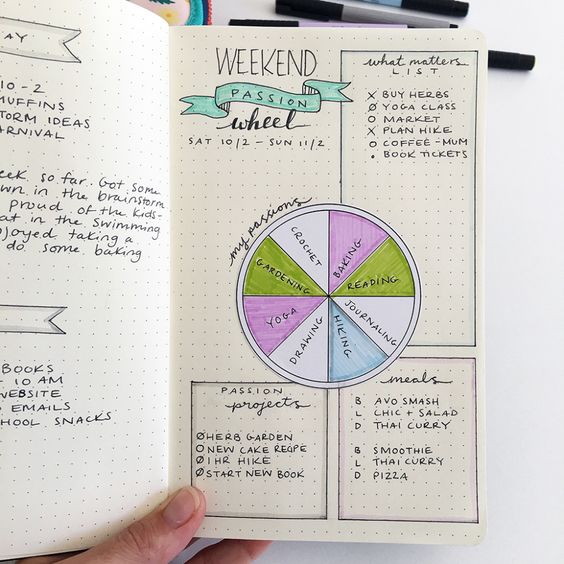 AY
10 - 2
MUFFINS
TORM IDEAS
ARNIVAL
eek so far. Got some
own in the brainstorm
proud of the kids-
at in the swimming
joyed taking a
do some baking
BOOKS
- 10 AM
WEBSITE
EMAILS
HOOL SNACKS
WEEKEND
PASSION
wheel
SAT 10/2 - SUN 11/2
what matters
LIST
X BUY HERBS
Ø YOGA CLASS
O MARKET
X PLAN HIKE
O COFFEE - MUM
• BOOK TICKETS
my passions
CROCHET
BAKING
READING
JOURNALING
HIKING
DRAWING
YOGA
GARDENING
PASSION
projects
Ø HERB GARDEN
O NEW CAKE RECIPE
Ø 1 HR HIKE
Ø START NEW BOOK
meals
B AVO SMASH
L CHIC + SALAD
D THAI CURRY
B SMOOTHIE
L THAI CURRY
D PIZZA